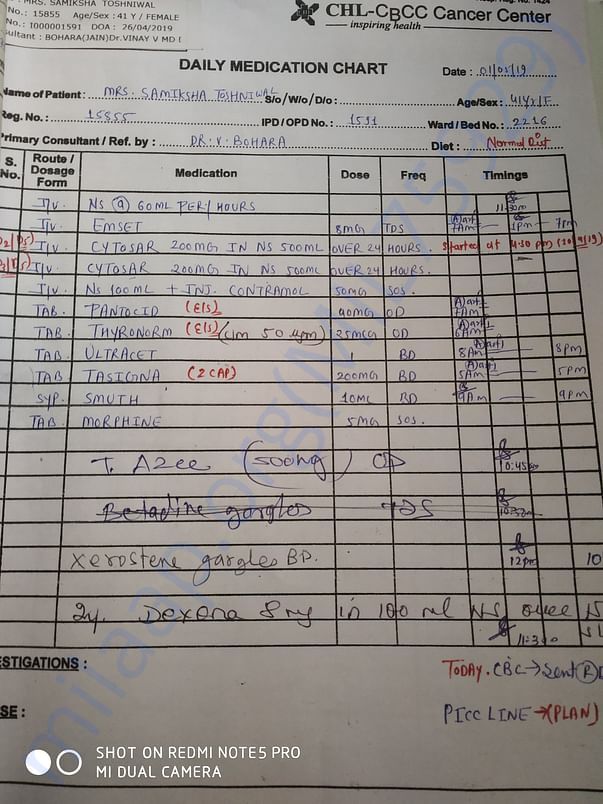 MRS. SAMIKSHA TOSHNIWAL
No.: 15855 Age/Sex : 41 Y / FEMALE
No.: I000001591 DOA : 26/04/2019
sultant : BOHARA(JAIN)Dr.VINAY V MD (
CHL-CBCC Cancer Center
inspiring health
DAILY MEDICATION CHART
Date : 01/05/19
Name of Patient : MRS. SAMIKSHA TOSHNIWAL S/o/W/o/D/o : Age/Sex : 41Y/F
Reg. No. : 15855 IPD / OPD No. : 1591 Ward / Bed No. : 2216
Primary Consultant / Ref. by : DR. V. BOHARA Diet : Normal Diet
S. No. Route / Dosage Form Medication Dose Freq Timings
I/V. NS @ 60ML PER/HOURS 11:30am
I/V. EMSET 8MG TDS 7AM 1pm 7pm
I/V. CYTOSAR 200MG IN NS 500ML OVER 24 HOURS. started at 4:30 pm
I/V. CYTOSAR 200MG IN NS 500ML OVER 24 HOURS.
I/V. NS 100ML + INJ. CONTRAMOL 50MG SOS.
TAB. PANTOCID (E/S) 40MG OD 7AM
TAB. THYRONORM (E/S) 25MCG OD 6AM
TAB. ULTRACET 1 BD 8AM 8pm
TAB TASIGNA (2 CAP) 200MG BD 5AM 5pm
SYP. SMUTH 10ML BD 9AM 9pm
TAB. MORPHINE 5MG SOS.
T. Azee (500mg) OD 10:45
Betadine gargles TDS
Xerostene gargles BD. 12pm 10
Inj. Dexona 8 mg in 100 ml NS over 15
11:30
ESTIGATIONS : TODAY. CBC → Sent
SE : PICC LINE → (PLAN)
milaap.org
SHOT ON REDMI NOTE5 PRO
MI DUAL CAMERA